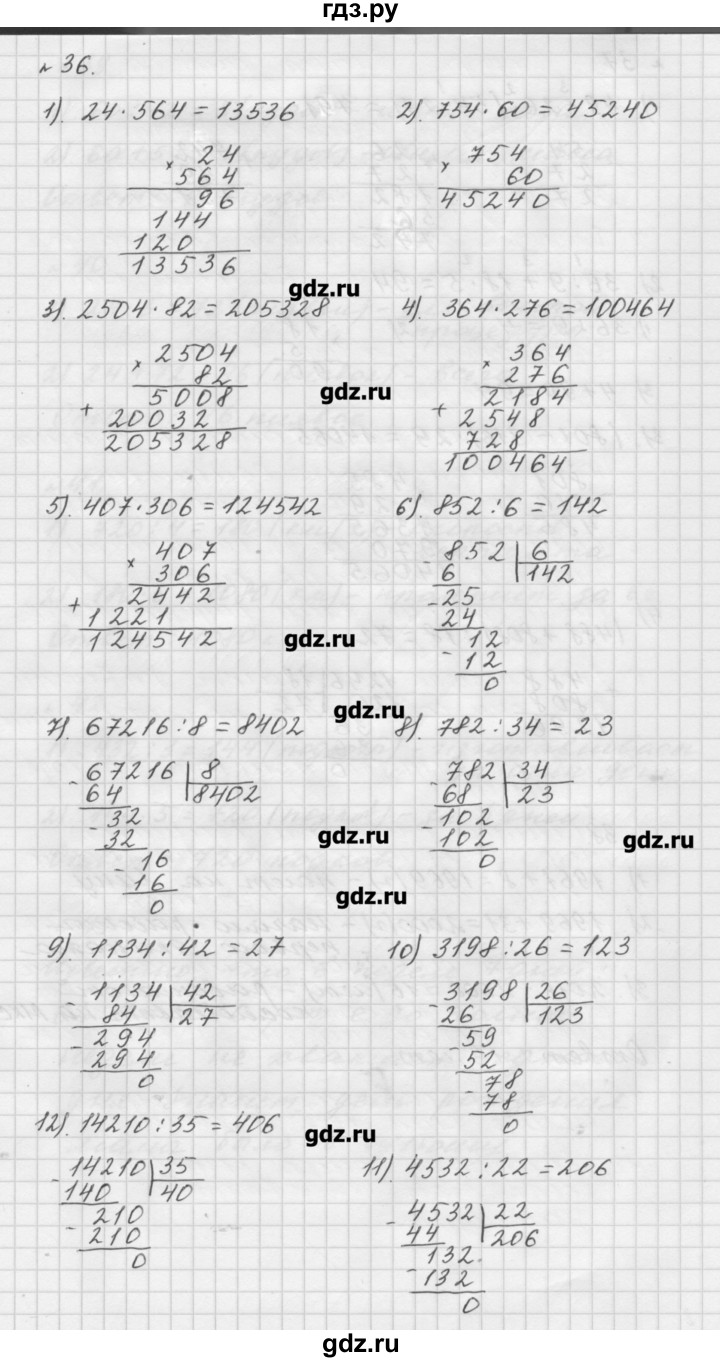 гдз.ру
№ 36.
1). 24·564=13536
× 24
564
96
144
120
13536
2). 754·60=45240
× 754
60
45240
gdz.ru
3). 2504·82=205328
× 2504
82
+ 5008
20032
205328
4). 364·276=100464
× 364
276
+ 2184
2548
728
100464
gdz.ru
5). 407·306=124542
× 407
306
+ 2442
1221
124542
6). 852:6=142
- 852 6
6 142
- 25
24
- 12
12
0
gdz.ru
gdz.ru
7). 67216:8=8402
- 67216 8
64 8402
- 32
32
- 16
16
0
8). 782:34=23
- 782 34
68 23
- 102
102
0
gdz.ru
gdz.ru
gdz.ru
9). 1134:42=27
- 1134 42
84 27
- 294
294
0
10) 3198:26=123
- 3198 26
26 123
- 59
52
- 78
78
0
12). 14210:35=406
- 14210 35
140 40
- 210
210
0
gdz.ru
11). 4532:22=206
- 4532 22
44 206
- 132
132
0
gdz.ru